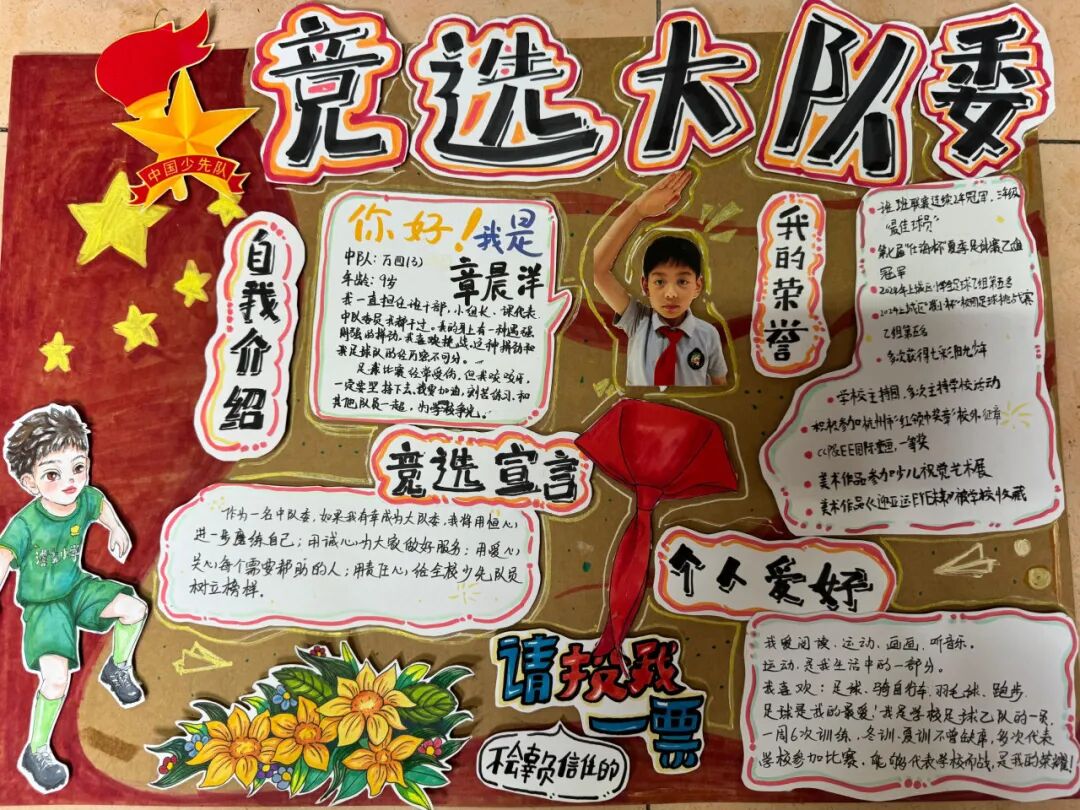 竞选大队委
中国少先队
自我介绍
你好!我是
章晨洋
中队:万图(3)
年龄:9岁
我一直担任班干部,小组长、课代表
中队委员我都干过。我的身上有一种遇强
则强的精神,我喜欢挑战,这种精神和
我足球队的经历密不可分。
足球比赛经常受伤,但我咬咬牙,
一定要坚持下去,我要加油,刻苦练习,和
其他队员一起,为学校争光。
我的荣誉
班班联赛连续2年冠军,三年级
"最佳球员"
冠军
乙组第五名
多次获得七彩阳光少年
学校主持团,多次主持学校活动
积极参加杭州市"红领巾奖章"校外
一等奖
美术作品参加少儿祝党艺术展
被学校收藏
竞选宣言
作为一名中队委,如果我有幸成为大队委,我将用恒心
进一步磨练自己;用诚心为大家做好服务;用爱心
关心每个需要帮助的人;用责任心给全校少先队员
树立榜样。
个人爱好
我爱阅读、运动、画画、听音乐。
运动是我生活中的一部分。
我喜欢:足球、骑自行车、羽毛球、跑步
足球是我的最爱!我是学校足球乙队的一员,
一周6次训练,冬训、夏训不曾缺席,多次代表
学校参加比赛,能够代表学校而战,是我的荣耀!
请投我
一票
不会辜负信任的